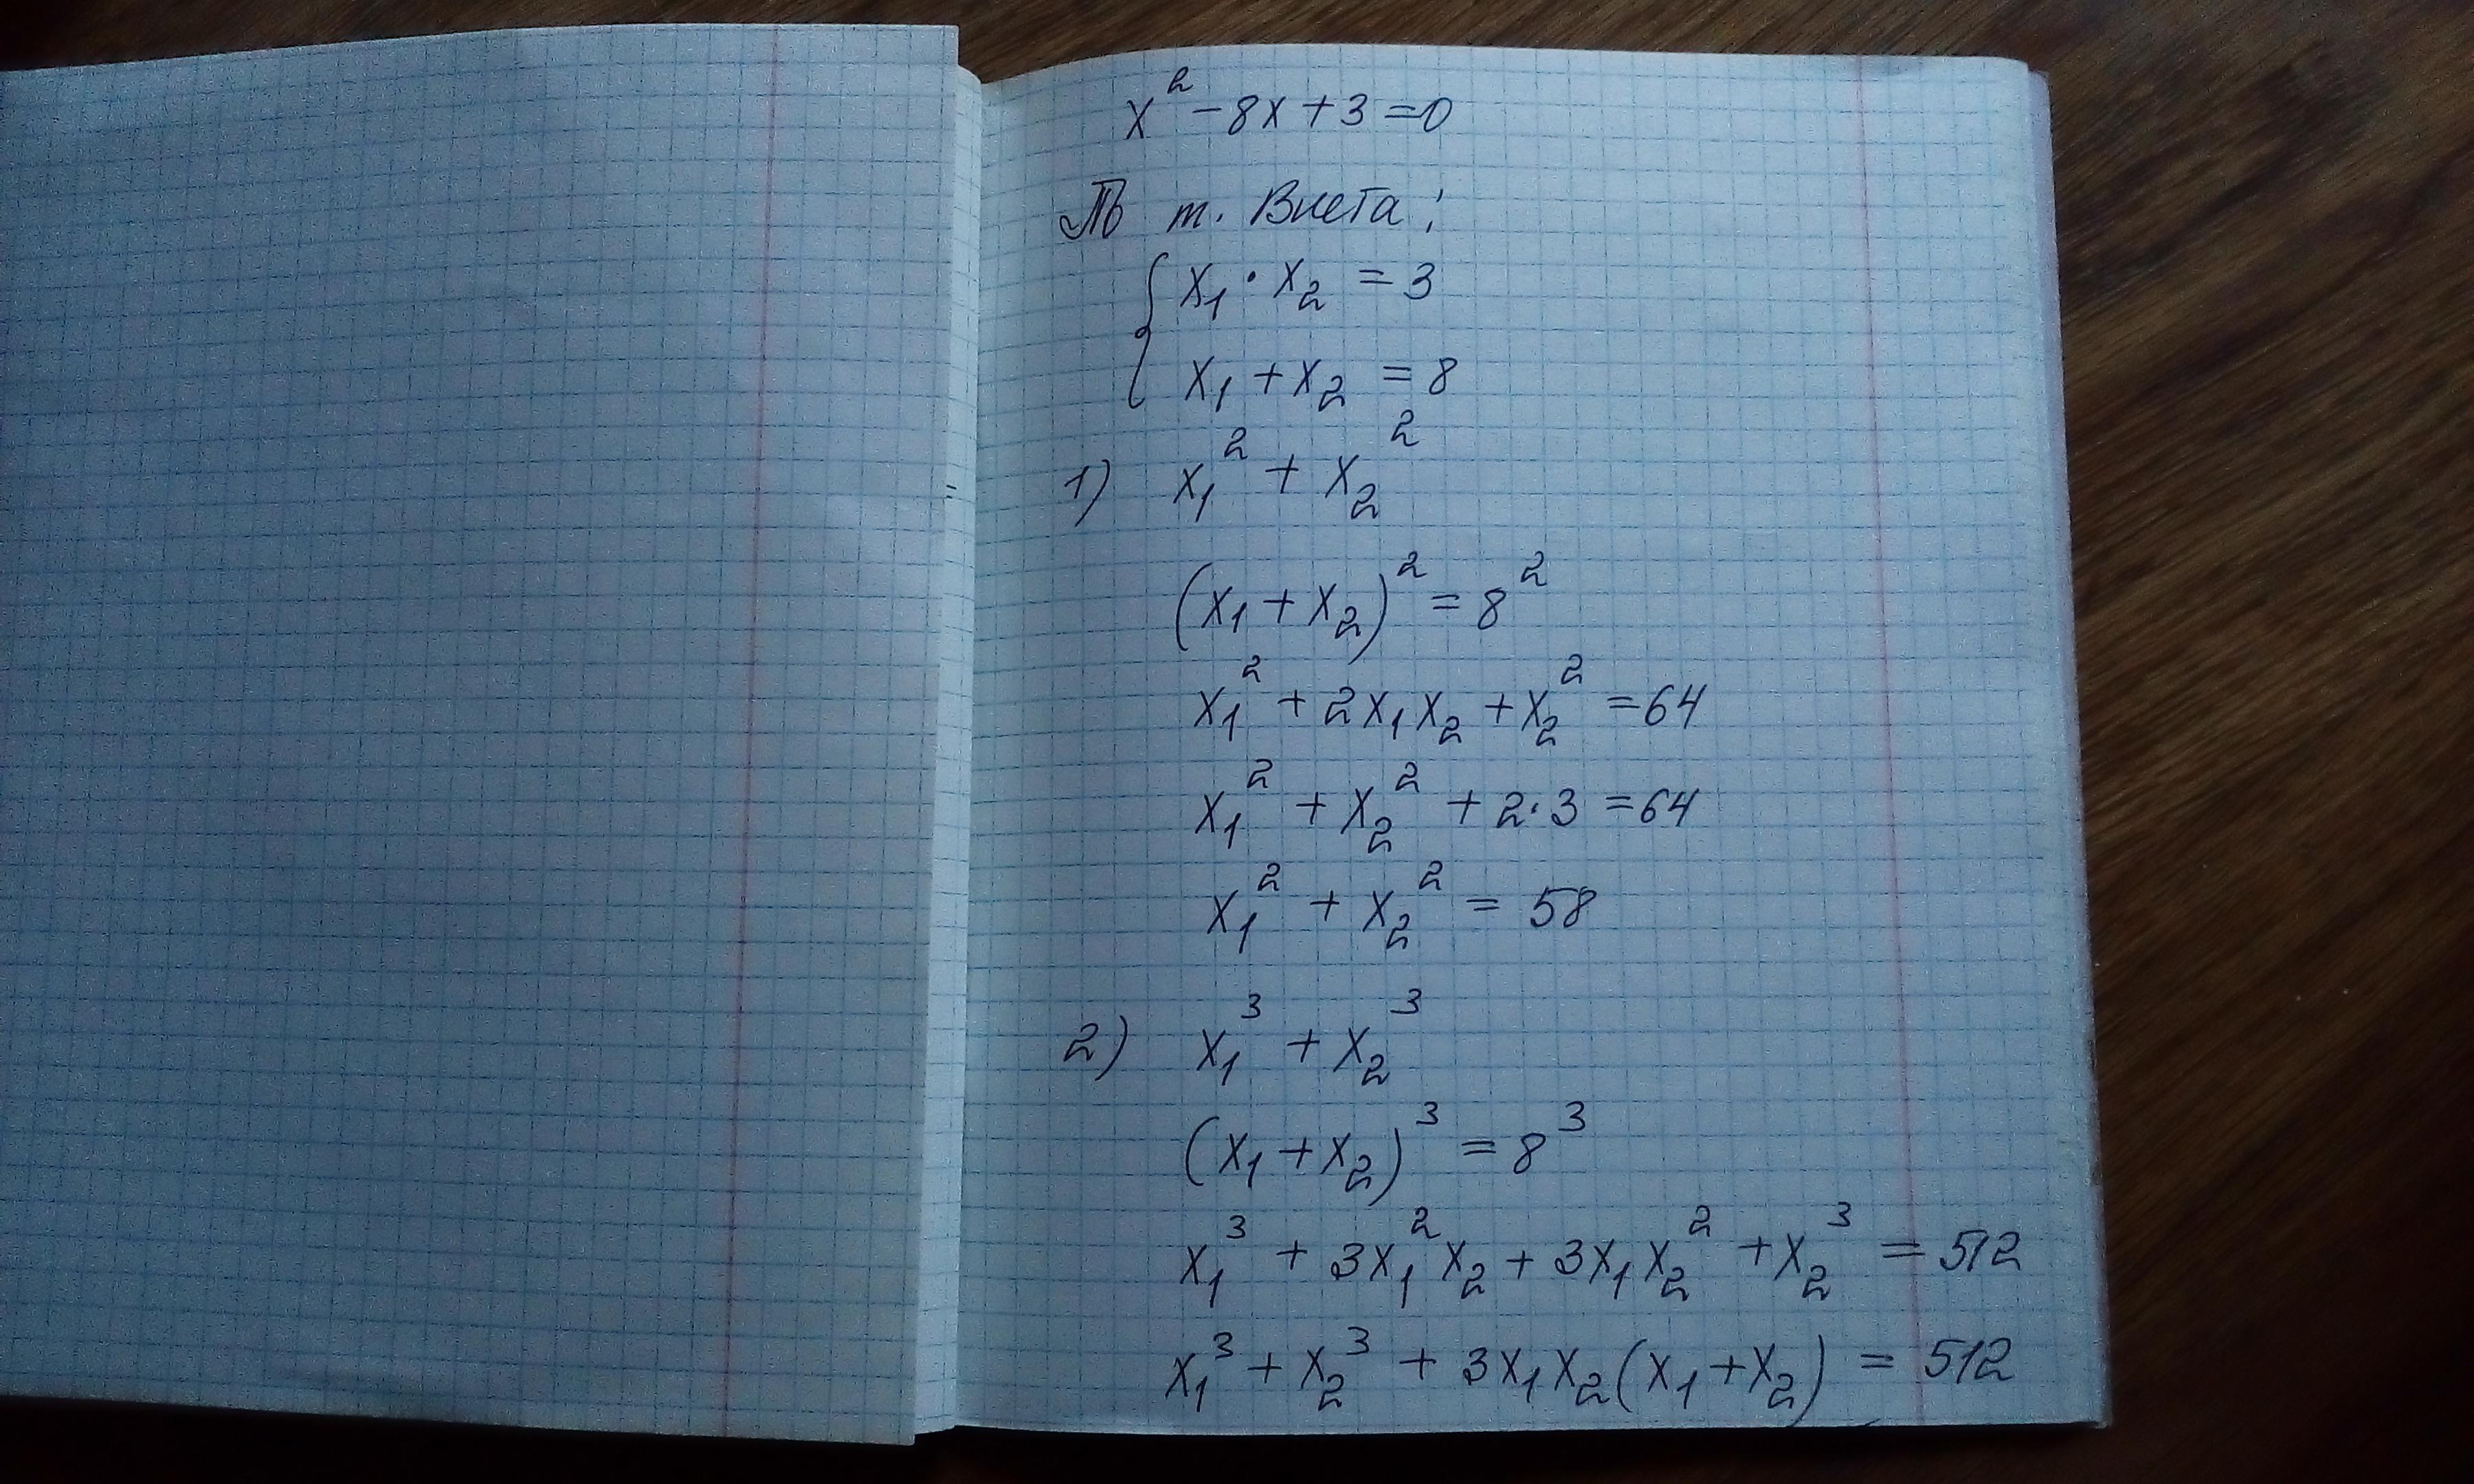 x² - 8x + 3 = 0
По т. Виета:
x₁ · x₂ = 3
x₁ + x₂ = 8
1) x₁² + x₂²
(x₁ + x₂)² = 8²
x₁² + 2x₁x₂ + x₂² = 64
x₁² + x₂² + 2·3 = 64
x₁² + x₂² = 58
2) x₁³ + x₂³
(x₁ + x₂)³ = 8³
x₁³ + 3x₁²x₂ + 3x₁x₂² + x₂³ = 512
x₁³ + x₂³ + 3x₁x₂(x₁ + x₂) = 512